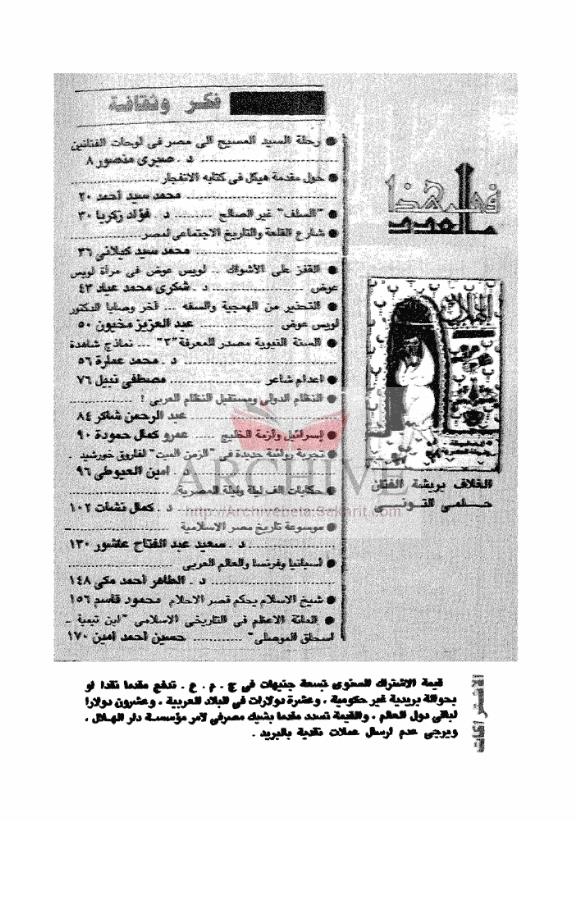 فى هذا
العدد
فكر وثقافة
● رحلة السيد المسيح الى مصر فى لوحات الفنانين
د . صبرى منصور ٨
● حول مقدمة هيكل فى كتابه الانفجار
محمد سيد أحمد ٢٠
● "السلف" غير الصالح ........ د . فؤاد زكريا ٣٠
● شارع القلعة والتاريخ الاجتماعى لمصر
محمد سيد كيلانى ٣٦
● القفز على الأشواك .. لويس عوض فى مرآة لويس
عوض ........ د . شكرى محمد عياد ٤٣
● التحذير من الهمجية والسفه ... آخر وصايا الدكتور
لويس عوض ........ عبد العزيز مخيون ٥٠
● السنة النبوية مصدر للمعرفة "٣" ... نماذج شاهدة
د . محمد عمارة ٥٦
● اعدام شاعر ........ مصطفى نبيل ٧٦
● النظام الدولى ومستقبل النظام العربى !
عبد الرحمن شاكر ٨٤
● إسرائيل وأزمة الخليج ..... عمرو كمال حمودة ٩٠
● تجربة روائية جديدة فى "الزمن الميت" لفاروق خورشيد
امين العيوطى ٩٦
● حكايات الف ليلة وليلة المصرية
د . كمال نشأت ١٠٢
● موسوعة تاريخ مصر الاسلامية
د . سعيد عبد الفتاح عاشور ١٣٠
● أسبانيا وفرنسا والعالم العربى
د . الطاهر أحمد مكى ١٤٨
● شيخ الاسلام يحكم قصر الاحلام محمود قاسم ١٥٦
● المائة الاعظم فى التاريخ الاسلامى "ابن تيمية -
اسحاق الموصلى" ........ حسين أحمد أمين ١٧٠
الهلال
الغلاف بريشة الفنان
حلمى التونى
ARCHIVE
http://Archivebeta.Sakhrit.com
الاشتراكات
قيمة الاشتراك السنوى تسعة جنيهات فى ج . م . ع . تدفع مقدما نقدا او
بحوالة بريدية غير حكومية ، وعشرة دولارات فى البلاد العربية ، وعشرون دولارا
لباقى دول العالم ، والقيمة تسدد مقدما بشيك مصرفى لأمر مؤسسة دار الهلال ،
ويرجى عدم ارسال عملات نقدية بالبريد .